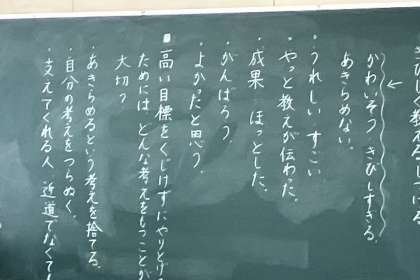 かわいそう きびしすぎる。
あきらめない。
・うれしい すごい
・やっと教えが伝わった。
・成果 ほっとした。
・がんばろう。
・よかったと思う。
■高い目標をくじけずにやりとげ
ためには どんな考えをもつことが
大切？
・あきらめるという考えを捨てる。
・自分の考えをつらぬく。
・支えてくれる人 近道でなくて